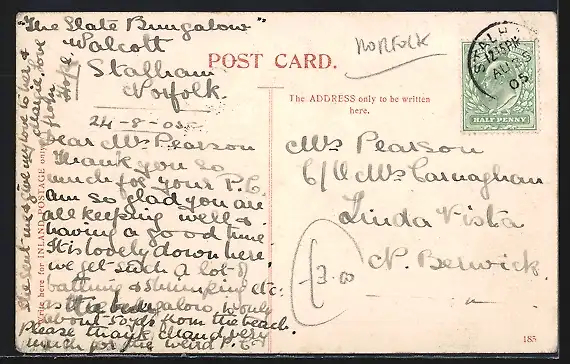 "The Slate Bungalow"
Walcott
Stalham
Norfolk.
24-8-05.
Dear Mrs Pearson
Thank you so
much for your P.C.
am so glad you are
all keeping well &
having a good time.
It is lovely down here
we get such a lot of
bathing & shrimping etc:
as the bungalow is only
about 50yds from the beach.
Please thank Maud very
much for the weird P.C!
love
from
Hope
POST CARD.
NORFOLK
The ADDRESS only to be written
here.
Write here for INLAND POSTAGE only
STALH
12.15PM
AU 25
05
HALF PENNY
Mrs Pearson
C/O Mrs Carnaghan
Linda Vista
N. Berwick.
£3.00
185